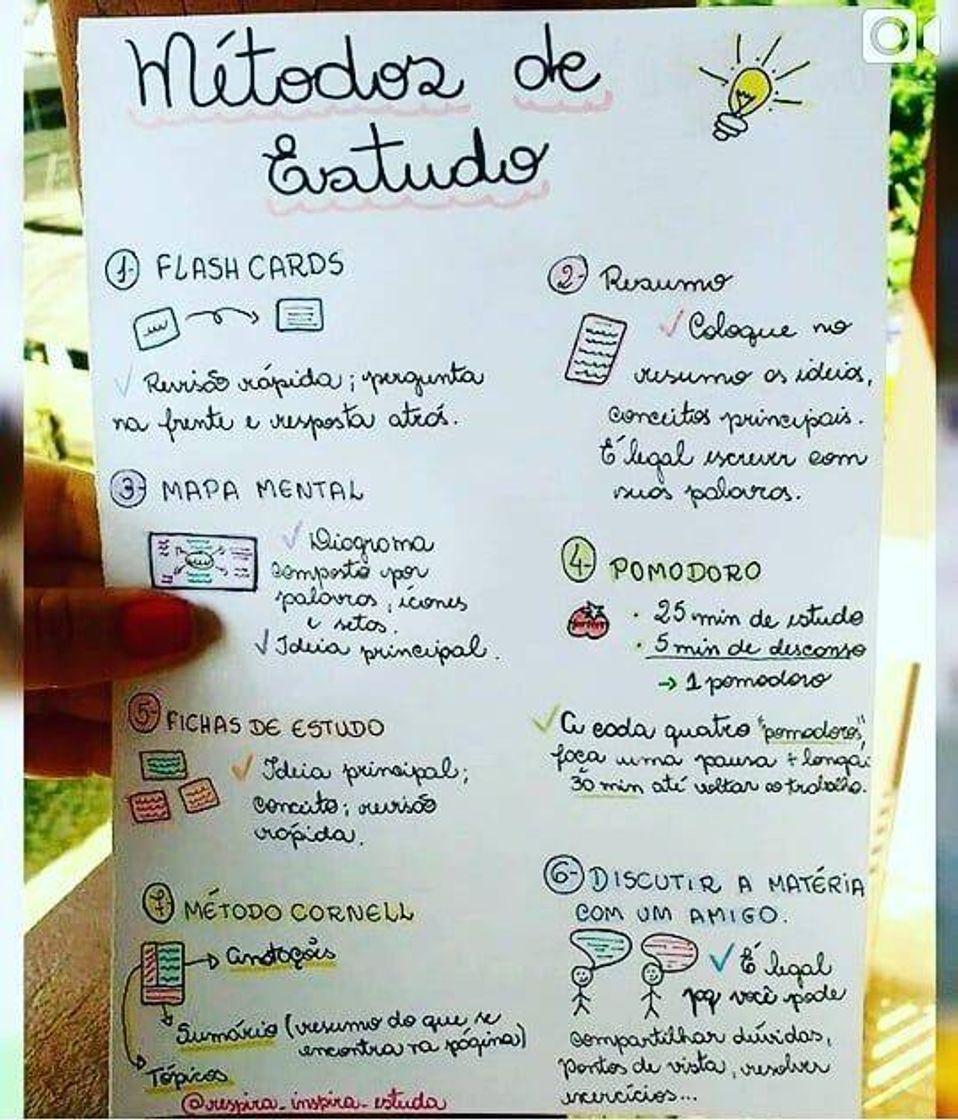 Métodos de
Estudo
1- FLASH CARDS
✓ Revisão rápida; pergunta
na frente e resposta atrás.
2- Resumo
✓ Coloque no
resumo as ideias,
conceitos principais.
É legal escrever com
suas palavras.
3- MAPA MENTAL
✓ Diagrama
composto por
palavras, ícones
e setas.
✓ Ideia principal.
4- POMODORO
• 25 min de estudo
• 5 min de descanso
→ 1 pomodoro
✓ A cada quatro "pomodoros",
faça uma pausa + longa:
30 min até voltar ao trabalho.
5- FICHAS DE ESTUDO
✓ Ideia principal;
conceito; revisão
rápida.
6- DISCUTIR A MATÉRIA
COM UM AMIGO.
✓ É legal
pq você pode
compartilhar dúvidas,
pontos de vista, resolver
exercícios...
7- MÉTODO CORNELL
→ Anotações
Sumário (resumo do que se
encontra na página)
Tópicos
@respira_inspira_estuda